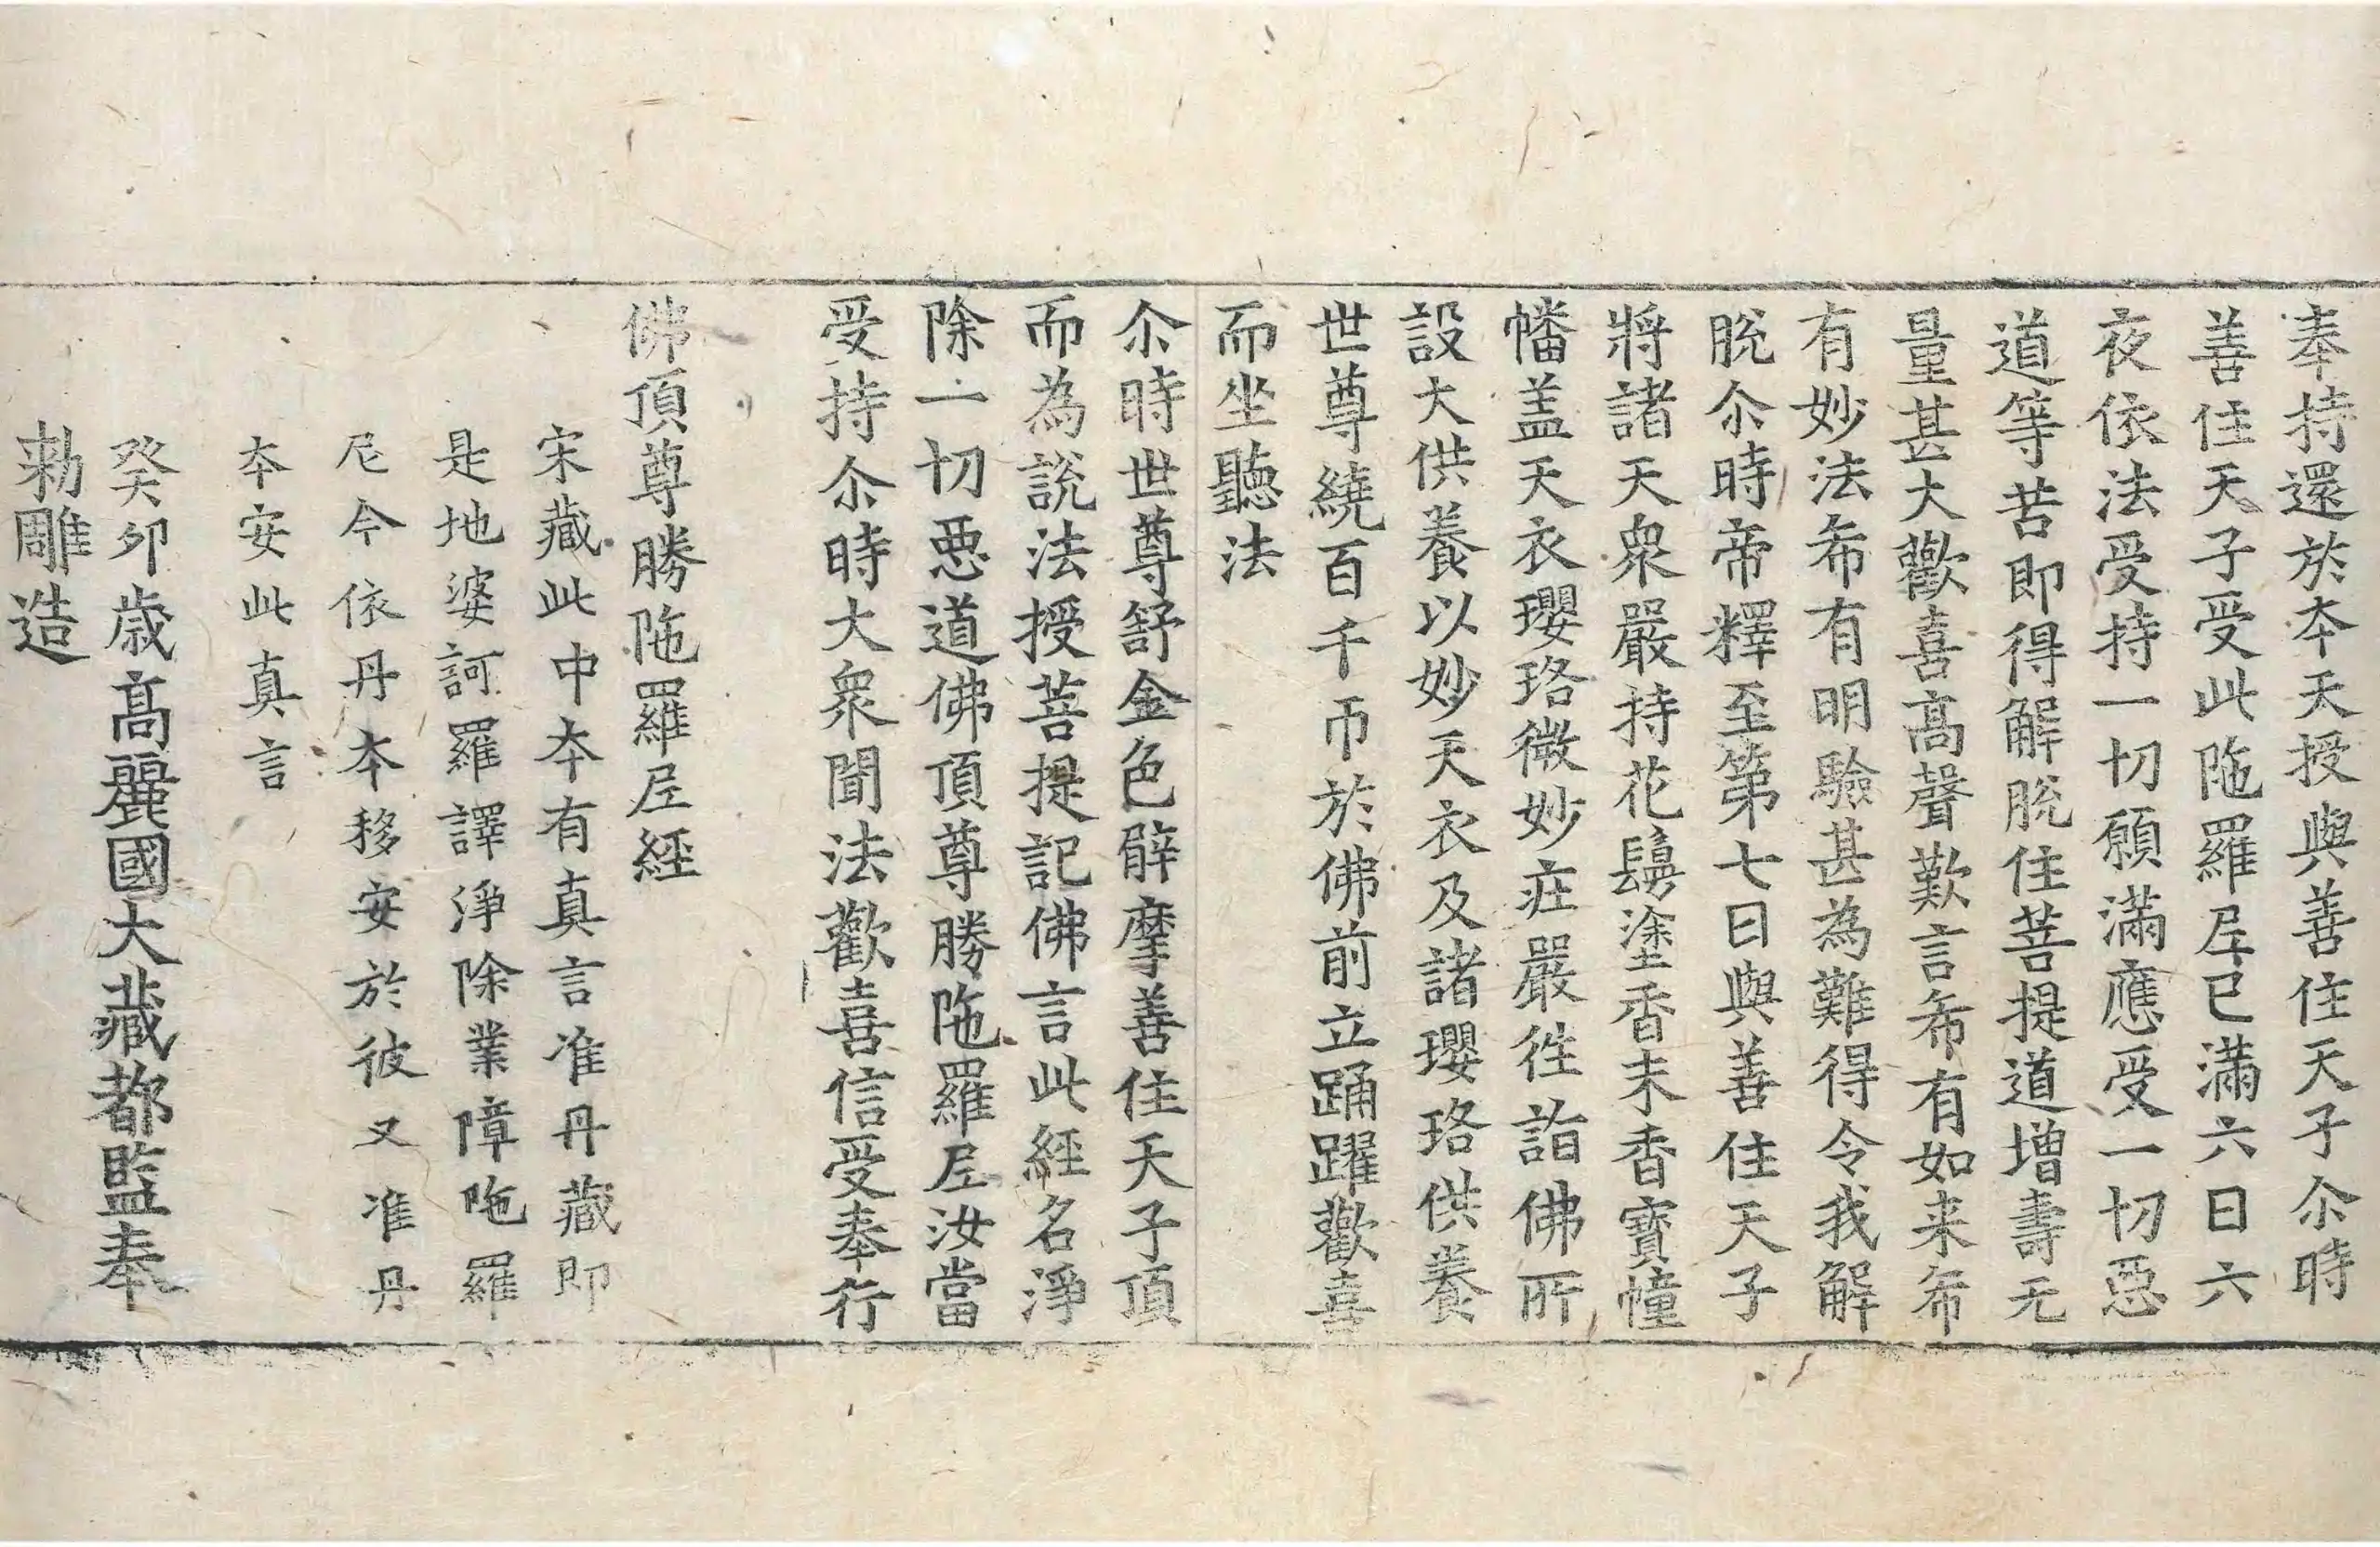 奉持還於本天授與善住天子尒時
善住天子受此陁羅尼已滿六日六
夜依法受持一切願滿應受一切惡
道等苦即得解脫住菩提道增壽无
量甚大歡喜髙聲歎言希有如来希
有妙法希有明驗甚為難得令我解
脫尒時帝釋至第七日與善住天子
將諸天衆嚴持花鬘塗香末香寶幢
幡盖天衣瓔珞微妙莊嚴徃詣佛所
設大供養以妙天衣及諸瓔珞供養
世尊繞百千帀於佛前立踊躍歡喜
而坐聽法
尒時世尊舒金色臂摩善住天子頂
而為說法授菩提記佛言此經名淨
除一切惡道佛頂尊勝陁羅尼汝當
受持尒時大衆聞法歡喜信受奉行
佛頂尊勝陁羅尼經
宋藏此中本有真言准丹藏即
是地婆訶羅譯淨除業障陁羅
尼今依丹本移安於彼又准丹
本安此真言
癸卯歳髙麗國大藏都監奉
勑雕造